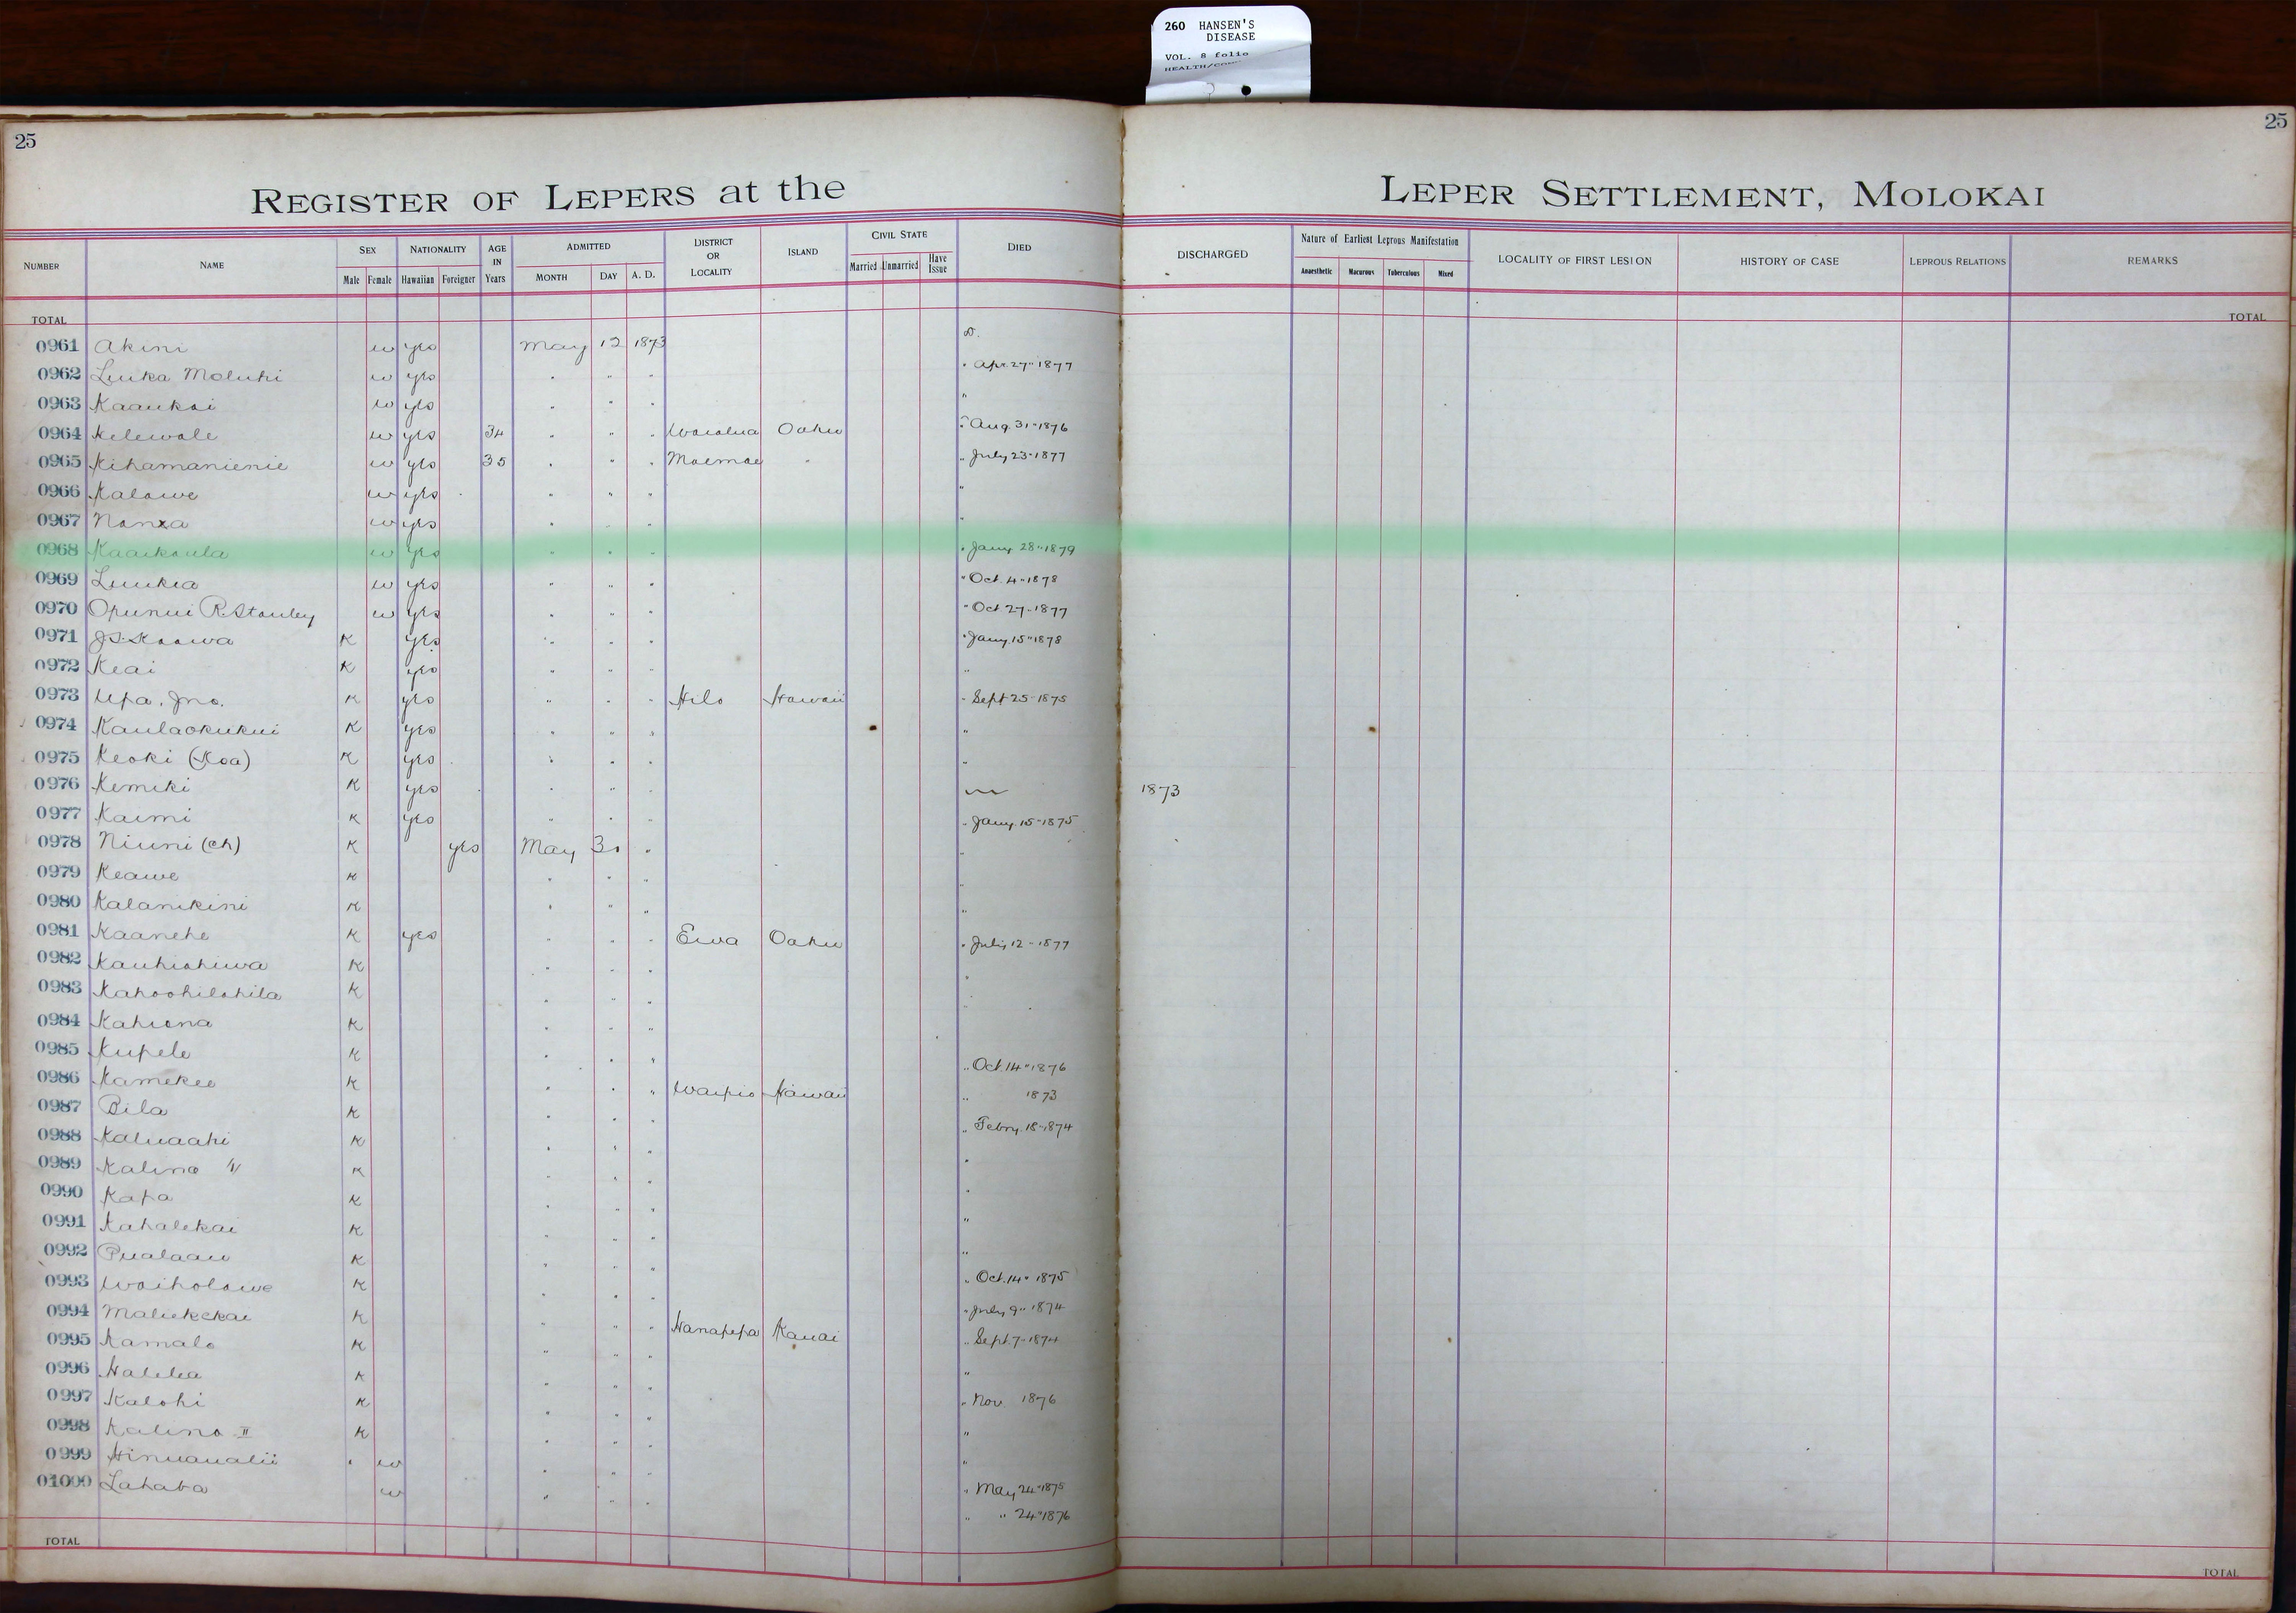 260 HANSEN'S
DISEASE
VOL. 8 folio
25
25
REGISTER OF LEPERS at the LEPER SETTLEMENT, MOLOKAI
NUMBER NAME SEX Male Female NATIONALITY Hawaiian Foreigner AGE IN Years ADMITTED MONTH DAY A. D. DISTRICT OR LOCALITY ISLAND CIVIL STATE Married Unmarried Have Issue DIED DISCHARGED Nature of Earliest Leprous Manifestation Anaesthetic Macurous Tuberculous Mixed LOCALITY OF FIRST LESION HISTORY OF CASE LEPROUS RELATIONS REMARKS
TOTAL TOTAL
0961 Akini w yes May 12 1873 D.
0962 Luika Moluhi w yes " " " " Apr. 27" 1877
0963 Kaaukai w yes " " " "
0964 Kelewale w yes 34 " " " Waialua Oahu " Aug. 31" 1876
0965 Kihamanienie w yes 35 " " " Moemoe " " July 23" 1877
0966 Kalawe w yes " " " "
0967 w yes " " " "
0968 Kaaikaula w yes " " " " Jany 28" 1879
0969 Luukia w yes " " " " Oct. 4" 1878
0970 Opunui R. Stanley w yes " " " " Oct 27" 1877
0971 J.S. Kaawa K yes " " " " Jany. 15" 1878
0972 Keai K yes " " " "
0973 Upa. Jno. K yes " " " Hilo Hawaii " Sept 25" 1875
0974 Kaulaokukui K yes " " " "
0975 Keoki (Koa) K yes " " " "
0976 Kemiki K yes " " " 1873
0977 Kaimi K yes " " " " Jany. 15" 1875
0978 Niuni (ch) K yes May 30 " "
0979 Keawe K " " " "
0980 Kalanikini K " " " "
0981 Kaanehe K yes " " " Ewa Oahu " July 12" 1877
0982 Kauhiahiwa K " " " "
0983 Kahoohilahila K " " " "
0984 Kahiona K " " "
0985 Kupele K " " " " Oct. 14" 1876
0986 Kamekeo K " " " Waipio Hawaii " 1873
0987 Bila K " " " " Febry. 18" 1874
0988 Kaluaahi K " " " "
0989 Kalino K " " " "
0990 Kapa K " " " "
0991 Kahalekai K " " " "
0992 Pualaau K " " " " Oct. 14" 1875
0993 Waiholowe K " " " " July 9" 1874
0994 Maliekekai K " " " Hanapepa Kauai " Sept. 7" 1874
0995 Kamalo K " " " "
0996 Halelea K " " " " Nov. 1876
0997 Kalohi K " " " "
0998 Kalino II K " " " "
0999 Hinuaualii w " " " " May 24" 1875
01000 Lahaba w " " " " " 24" 1876
TOTAL TOTAL